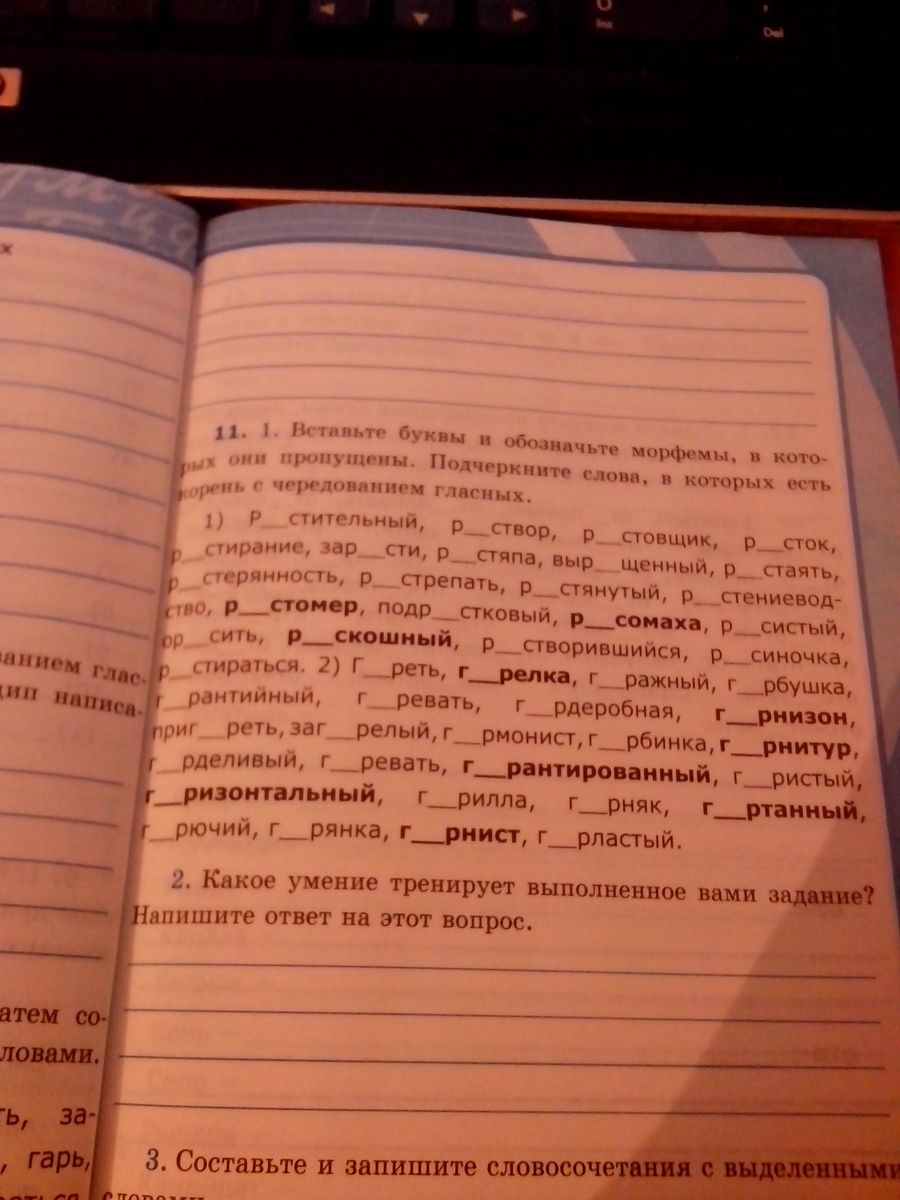 Ins
Del
х
11. 1. Вставьте буквы и обозначьте морфемы, в кото-
рых они пропущены. Подчеркните слова, в которых есть
корень с чередованием гласных.
1) Р__стительный, р__створ, р__стовщик, р__сток,
р__стирание, зар__сти, р__стяпа, выр__щенный, р__стаять,
р__стерянность, р__стрепать, р__стянутый, р__стениевод-
ство, р__стомер, подр__стковый, р__сомаха, р__систый,
ор__сить, р__скошный, р__створившийся, р__синочка,
р__стираться. 2) Г__реть, г__релка, г__ражный, г__рбушка,
г__рантийный, г__ревать, г__рдеробная, г__рнизон,
приг__реть, заг__релый, г__рмонист, г__рбинка, г__рнитур,
г__рделивый, г__ревать, г__рантированный, г__ристый,
г__ризонтальный, г__рилла, г__рняк, г__ртанный,
г__рючий, г__рянка, г__рнист, г__рластый.
2. Какое умение тренирует выполненное вами задание?
Напишите ответ на этот вопрос.
3. Составьте и запишите словосочетания с выделенными
словами.
ванием глас-
цип написа-
атем со-
ловами.
ть, за-
, гарь,